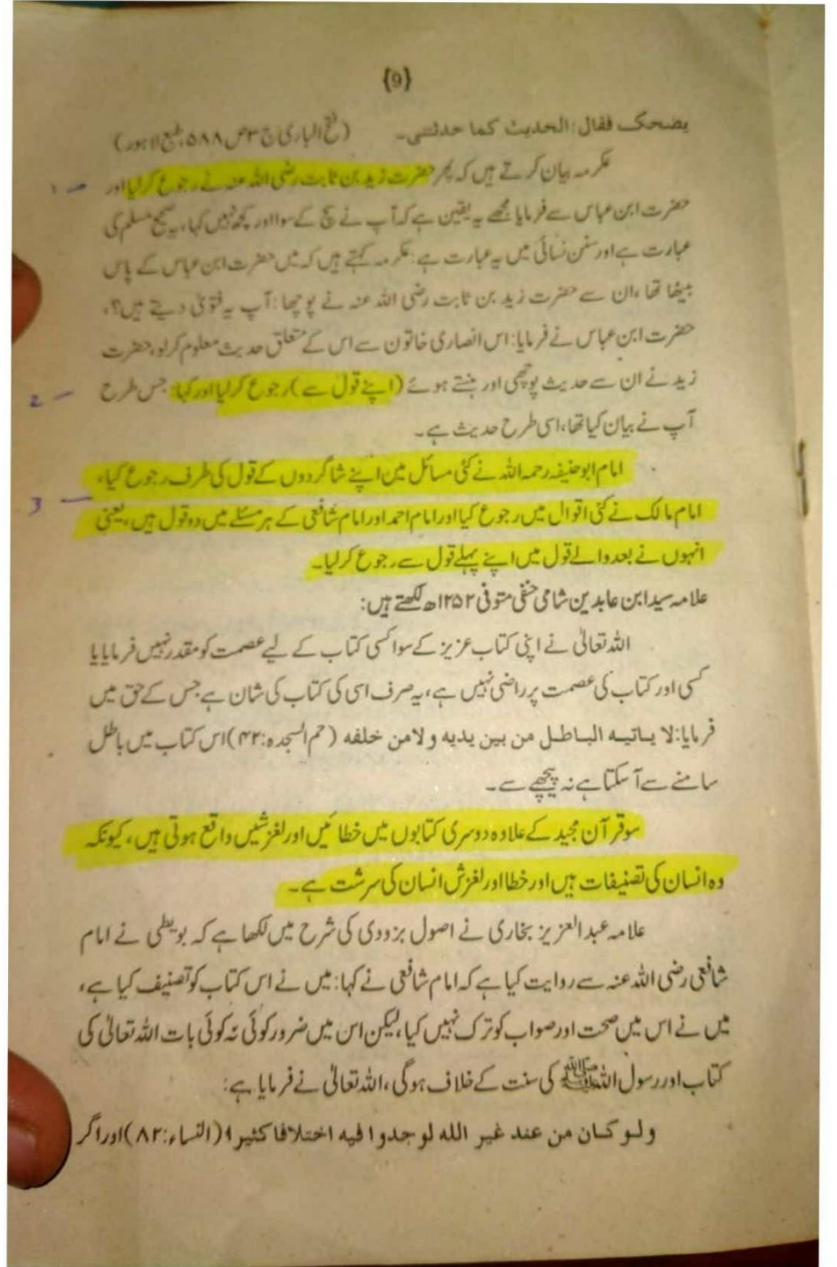 {9}
یضحک فقال: الحدیث کما حدثتنی۔ (فتح الباری ج ۳ ص ۵۸۸، طبع لاہور)
عکرمہ بیان کرتے ہیں کہ پھر حضرت زید بن ثابت رضی اللہ عنہ نے رجوع کرلیا اور
1
حضرت ابن عباس سے فرمایا مجھے یہ یقین ہے کہ آپ نے سچ کے سوا اور کچھ نہیں کہا، یہ صحیح مسلم کی
عبارت ہے اور سنن نسائی میں یہ عبارت ہے: عکرمہ کہتے ہیں کہ میں حضرت ابن عباس کے پاس
بیٹھا تھا، ان سے حضرت زید بن ثابت رضی اللہ عنہ نے پوچھا: آپ یہ فتویٰ دیتے ہیں؟،
حضرت ابن عباس نے فرمایا: اس انصاری خاتون سے اس کے متعلق حدیث معلوم کرلو، حضرت
زید نے ان سے حدیث پوچھی اور ہنستے ہوئے (اپنے قول سے) رجوع کرلیا اور کہا: جس طرح
2
آپ نے بیان کیا تھا، اسی طرح حدیث ہے۔
امام ابوحنیفہ رحمہ اللہ نے کئی مسائل میں اپنے شاگردوں کے قول کی طرف رجوع کیا،
3
امام مالک نے کئی اقوال میں رجوع کیا اور امام احمد اور امام شافعی کے ہر مسئلے میں دو قول ہیں، یعنی
انہوں نے بعد والے قول میں اپنے پہلے قول سے رجوع کرلیا۔
علامہ سید ابن عابدین شامی حنفی متوفی ۱۲۵۲ھ لکھتے ہیں:
اللہ تعالیٰ نے اپنی کتاب عزیز کے سوا کسی کتاب کے لیے عصمت کو مقدر نہیں فرمایا یا
کسی اور کتاب کی عصمت پر راضی نہیں ہے، یہ صرف اسی کی کتاب کی شان ہے جس کے حق میں
فرمایا: لا یاتیہ الباطل من بین یدیه ولامن خلفه (حم السجدہ: ۴۲) اس کتاب میں باطل
سامنے سے آسکتا ہے نہ پیچھے سے۔
سو قرآن مجید کے علاوہ دوسری کتابوں میں خطائیں اور لغزشیں واقع ہوتی ہیں، کیونکہ
وہ انسان کی تصنیفات ہیں اور خطا اور لغزش انسان کی سرشت ہے۔
علامہ عبدالعزیز بخاری نے اصول بزدوی کی شرح میں لکھا ہے کہ بویطی نے امام
شافعی رضی اللہ عنہ سے روایت کیا ہے کہ امام شافعی نے کہا: میں نے اس کتاب کو تصنیف کیا ہے،
میں نے اس میں صحت اور صواب کو ترک نہیں کیا، لیکن اس میں ضرور کوئی نہ کوئی بات اللہ تعالیٰ کی
کتاب اور رسول اللہ ﷺ کی سنت کے خلاف ہوگی، اللہ تعالیٰ نے فرمایا ہے:
ولو کان من عند غیر الله لوجدوا فیه اختلافا کثیرا (النساء: ۸۲) اور اگر